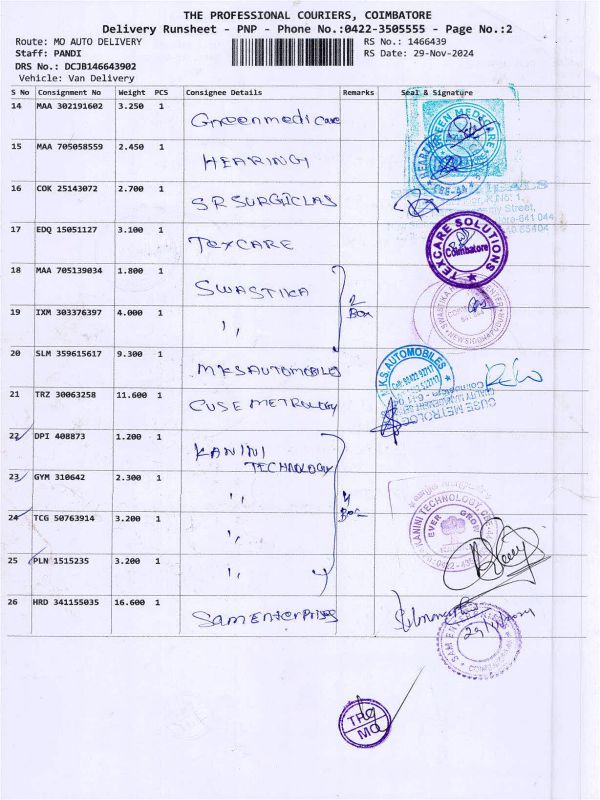 THE PROFESSIONAL COURIERS, COIMBATORE
Delivery Runsheet - PNP - Phone No.:0422-3505555 - Page No.:2
Route: MO AUTO DELIVERY
RS No.: 1466439
Staff: PANDI
RS Date: 29-Nov-2024
DRS No.: DCJB146643902
Vehicle: Van Delivery
S No Consignment No Weight PCS Consignee Details Remarks Seal & Signature
14 MAA 302191602 3.250 1 Greenmedicare
15 MAA 705058559 2.450 1 HEARING
16 COK 25143072 2.700 1 SR SURGICLAS
17 EDQ 15051127 3.100 1 TEXCARE
TEXCARE SOLUTIONS
Coimbatore
18 MAA 705139034 1.800 1 SWASTIKA
2 Box
19 IXM 303376397 4.000 1 ,,
20 SLM 359615617 9.300 1 MKS AUTOMOBILES
M.K.S. AUTOMOBILES
21 TRZ 30063258 11.600 1 CUSE METROLOGY
CUSE METROLOGY
22 DPI 408873 1.200 1 KANINI
TECHNOLOGY
23 GYM 310642 2.300 1 ,,
4 Box
24 TCG 50763914 3.200 1 ,,
KANINI TECHNOLOGY
EVER GROW
25 PLN 1515235 3.200 1 ,,
26 HRD 341155035 16.600 1 Sam Enterprises
SAM ENTERPRISES